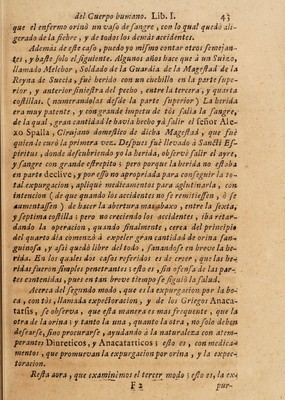 del Cuerpo humano. Lib. I. 43
que el enfermo orinò un vaso de sangre, con lo qual quedò ali-
gerado de la fiebre, y de todos los demàs accidentes.
Además de este caso, puedo yo mismo contar otros semejan-
tes, y baste solo el siguiente. Algunos años hace que à un Suizo,
llamado Melchor, Soldado de la Guardia de la Magestad de la
Reyna de Suecia, fuè herido con un cuchillo en la parte supe-
rior, y anterior siniestra del pecho, entre la tercera, y quarta
costillas. (numerandolas desde la parte superior) La herida
era muy patente, y con grande impetu de tòs salia la sangre,
de la qual, gran cantidad le havia hecho yà salir el señor Ale-
xo Spalla, Cirujano domestico de dicha Magestad, que fuè
quien le curò la primera vez. Despues fuè llevado à Sancti Es-
piritus, donde descubriendo yo la herida, observè salir el ayre,
y sangre con grande estrepito; pero porque la herida no estaba
en parte declive, y por esso no apropriada para conseguir la to-
tal expurgacion, apliquè medicamentos para aglutinarla, con
intencion (de que quando los accidentes no se remitiessen, ò se
aumentassen) de hacer la abertura mas abaxo, entre la sexta,
y septima costilla; pero no creciendo los accidentes, iba retar-
dando la operacion, quando finalmente, cerca del principio
del quarto dia comenzò à expeler gran cantidad de orina san-
guinosa, y assi quedò libre del todo, sanandose en breve la he-
rida. En los quales dos casos referidos es de creer, que las he-
ridas fueron simples penetrantes; esto es, sin ofensa de las par-
tes contenidas, pues en tan breve tiempo se siguiò la salud.
Acerca del segundo modo, que es la expurgacion por la bo-
ca, con tòs, llamada expectoracion, y de los Griegos Anaca-
tarsis, se observa, que esta manera es mas frequente, que la
otra de la orina; y tanto la una, quanto la otra, no solo deben
desearse, sino procurarse, ayudando à la naturaleza con atem-
perantes Diureticos, y Anacatarticos; esto es, con medica-
mentos, que promuevan la expurgacion por orina, y la expec-
toracion.
Resta aora, que examinimos el tercer modo; esto es, la ex-
F 2 pur-